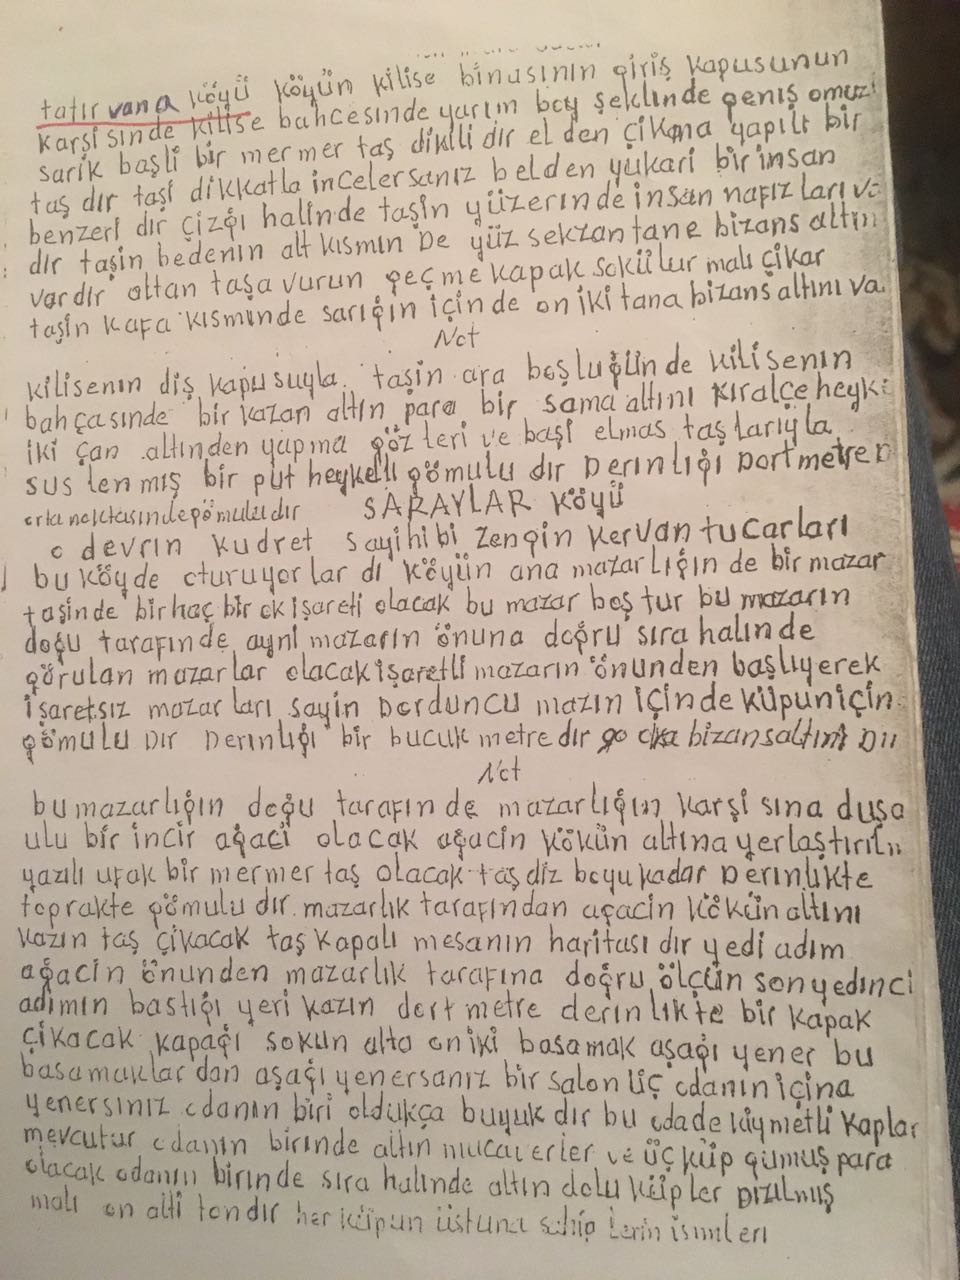 tatır vana köyü köyün kilise binasının giriş kapusunun
karşisinde kilise bahcesinde yarım boy şeklinde geniş omuz
sarik başli bir mermer taş dikili dir elden çikma yapılı bir
taş dır taşi dikkatla incelersanız belden yukari bir insan
benzeri dir çizgi halinde taşin yüzerinde insan nafızları va
dır taşin bedenın alt kısmın De yüz sekzan tane bizans altin
vardır altan taşa vurun geçme kapak sokülur malı çikar
taşin kafa kısmında sarığin içinde on iki tana bizans altını va
Not
kilisenın diş kapusuyla taşin ara boşluğunde kilisenın
bahçasınde bir kazan altin para bir sama altını kıralçe heyk
iki çan altınden yapma göz leri ve başi elmas taşlarıyla
sus len mış bir put heykeli gömulu dır Derınlıği Dort metre D
orta noktasinde gömuludır SARAYLAR KöYÜ
o devrın kudret sayihibi zengin kervan tucarları
bu köyde oturuyorlar dı köyün ana mazarlığın de bir mazar
taşinde bir haç bir ok işareti olacak bu mazar boş tur bu mazarın
doğu tarafınde ayni mazarın önuna doğru sıra halınde
görulan mazarlar olacak işaretli mazarın önunden başlıyerek
işaretsız mazarları sayin Dorduncu mazın içinde küpun için
gömulu Dır Derınlığı bir bucuk metredır 90 oka bizans altını Dı
Not
bu mazarlığın doğu tarafınde mazarlığın karşi sına duşa
ulu bir incir ağaci olacak ağacin kökün altına yerlaştırıl
yazılı ufak bir mermer taş olacak taş diz boyu kadar Derınlıkte
toprakte gömulu dır mazarlık tarafından ağacin kökün altını
kazın taş çikacak taş kapalı mesanın haritası dır yedi adım
ağacin önunden mazarlık tarafına doğru ölçün son yedıncı
adimın bastığı yeri kazın dort metre derinlıkte bir kapak
çikacak kapağı sokun alta on iki basamak aşağı yener bu
basamaklar dan aşağı yenersanız bir salon üç odanın içina
yenersınız odanın biri oldukça buyuk dır bu odade kiymetli kaplar
mevcutur odanın birınde altın mucaverler ve üç küp gumuş para
olacak odanın birınde sıra halınde altın dolu küpler Dızılmış
malı on alti tondır her küpun üstuna sahip lerin ismleri